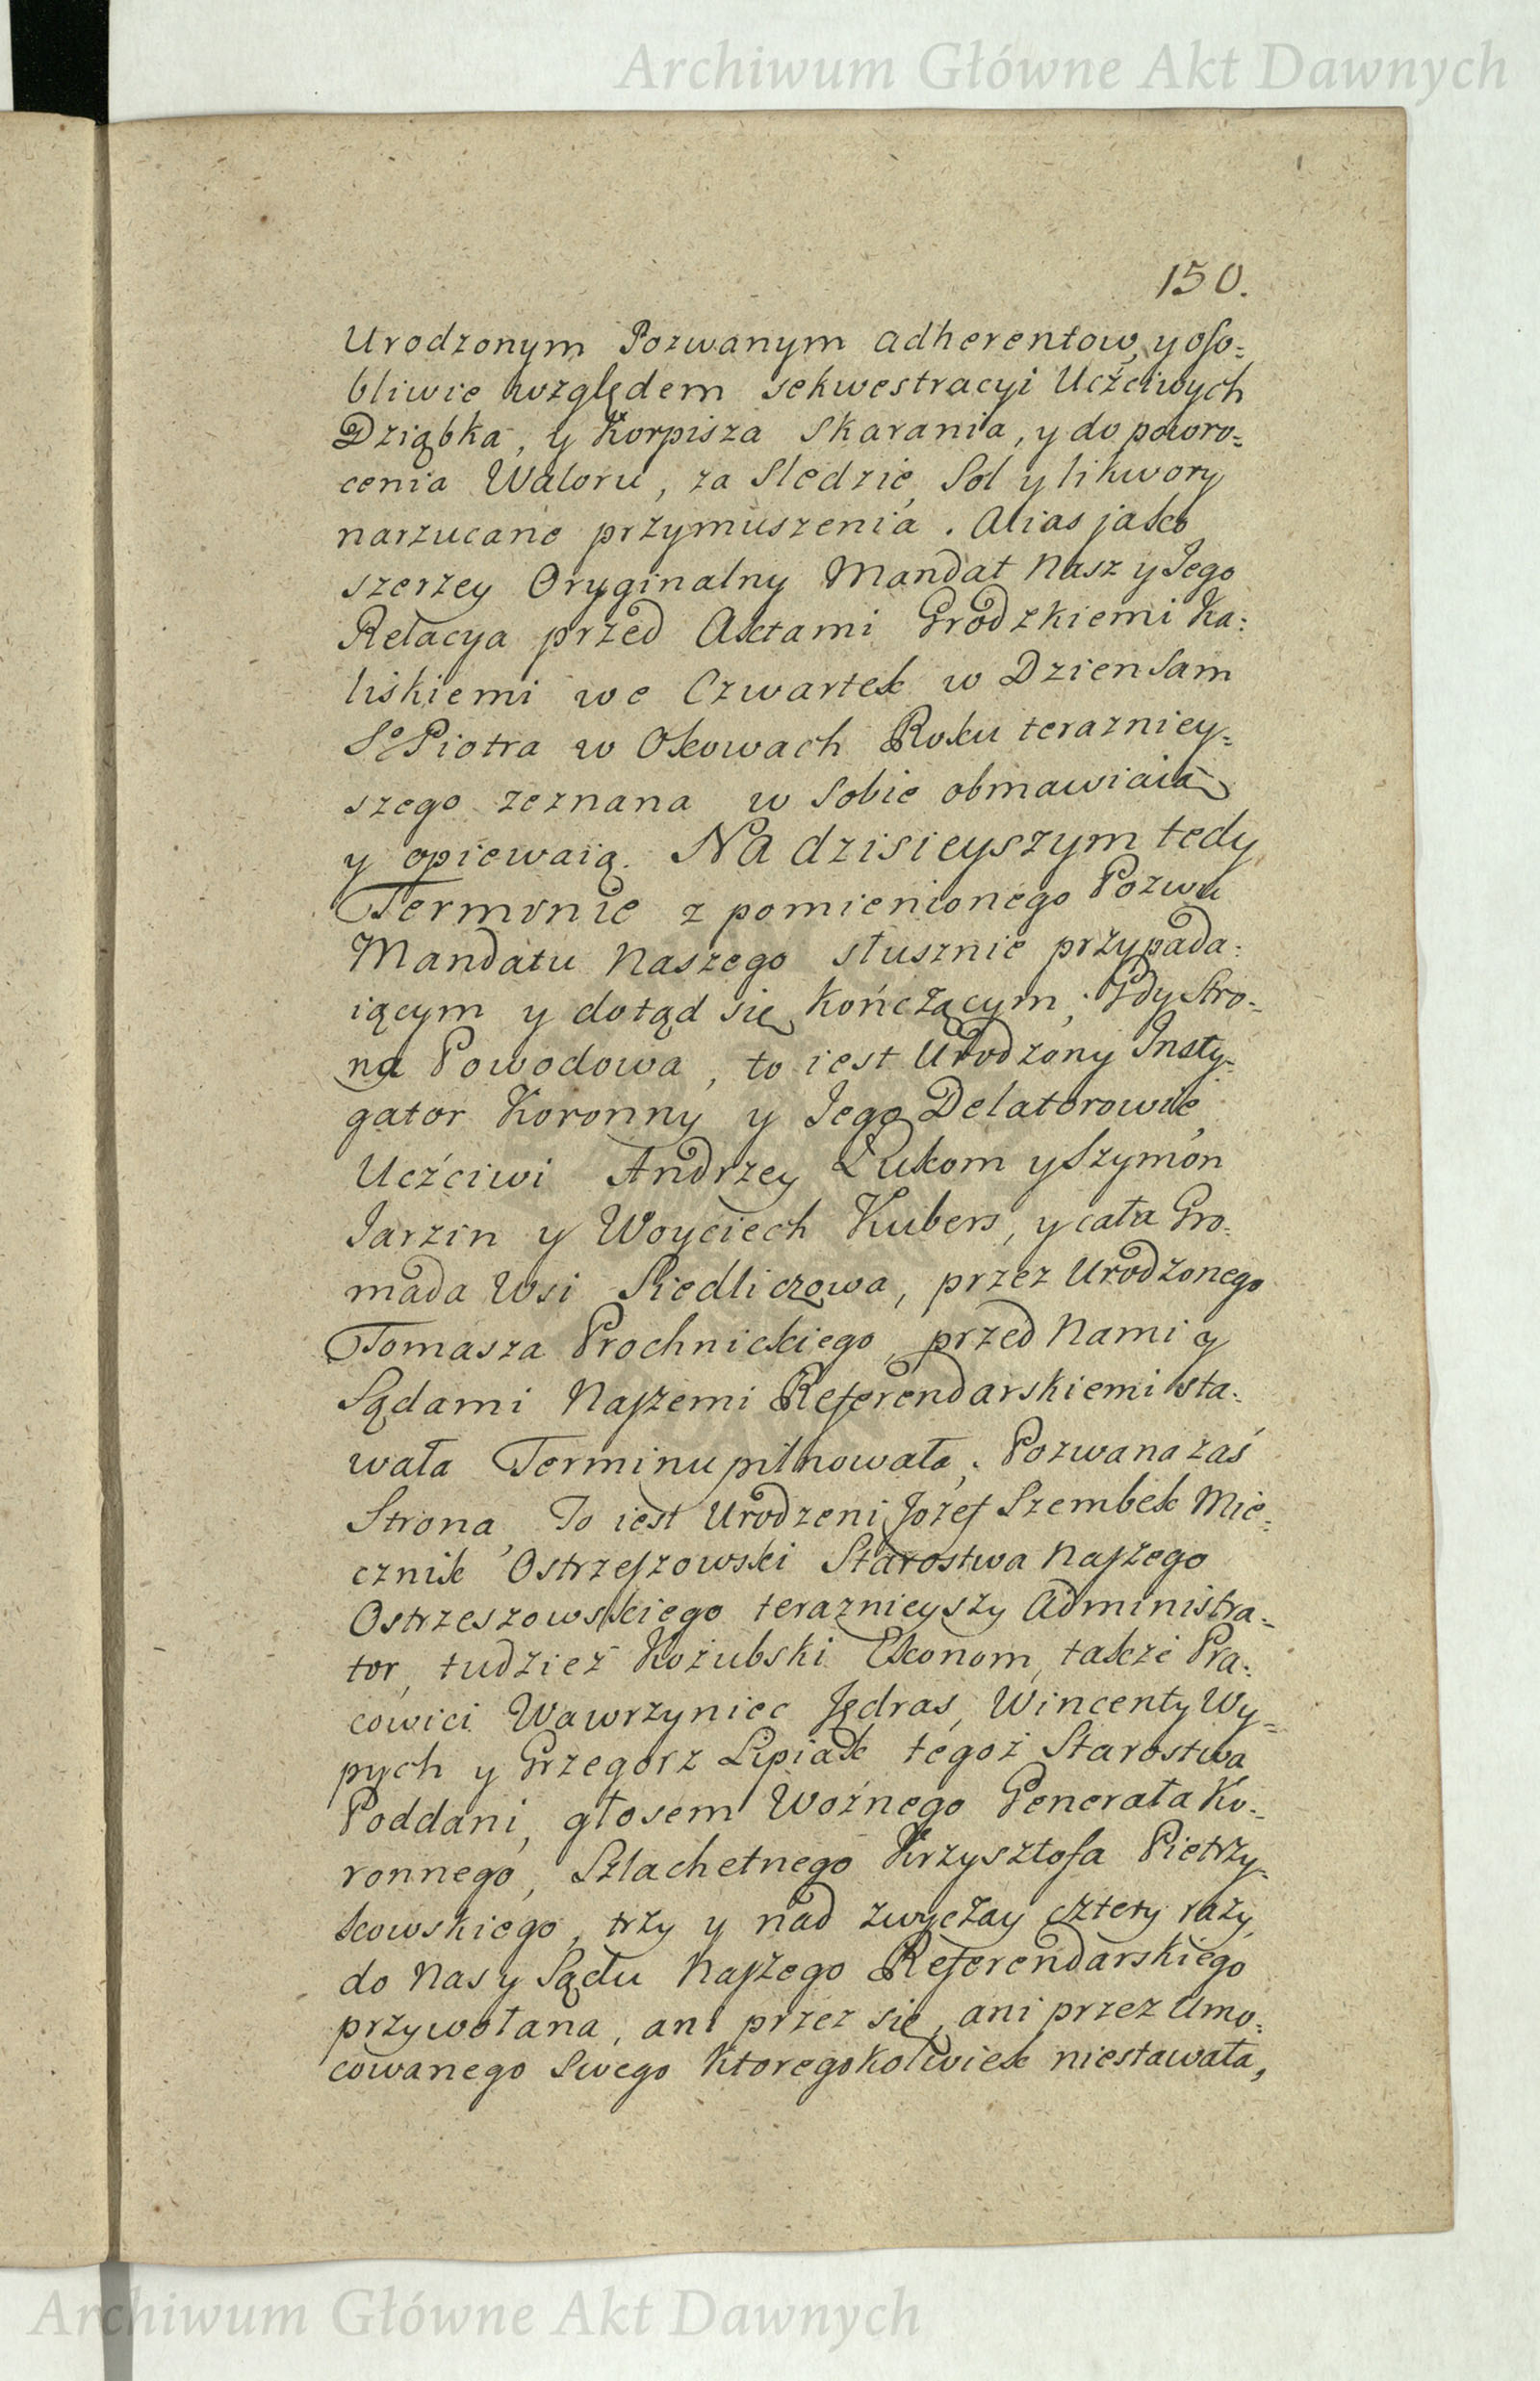 Archiwum Główne Akt Dawnych
150.
Urodzonym Pozwanym adherentow, y oso=
bliwie względem sekwestracyi Uczciwych
Dziąbka, y Korpisza Skarania, y do powro=
cenia Waloru, za Sledzie, Sol y likwory
narzucane przymuszenia. Alias jako
szerzey Oryginalny Mandat Nasz y Jego
Relacya przed Aktami Grodzkiemi Ka:
liskiemi we Czwartek w Dzien Sam
So Piotra w Okowach Roku terazniey=
szego zeznana w Sobie obmawiaią
y opiewaią. Na dzisieyszym tedy
Terminie z pomienionego Pozwu
Mandatu Naszego słusznie przypada:
iącym y dotąd się kończącym, Gdy Stro=
na Powodowa, to iest Urodzony Insty=
gator Koronny y Jego Delatorowie,
Uczciwi Andrzey Łukom y Szymon
Jarzin y Woyciech Kubers, y cała Gro=
mada Wsi Siedliczowa, przez Urodzonego
Tomasza Prochnickiego, przed Nami y
Sądami Naszemi Referendarskiemi sta:
wała Terminu pilnowała, Pozwana zaś
Strona, To iest Urodzeni Jozef Szembek Mie=
cznik Ostrzeszowski Starostwa Naszego
Ostrzeszowskiego teraznieyszy Administra=
tor, tudziez Kozubski Ekonom, takze Pra=
cowici Wawrzyniec Jędras, Wincenty Wy=
pych y Grzegorz Lipiak tegoż Starostwa
Poddani, głosem Woźnego Generała Ko=
ronnego, Szlachetnego Krzysztofa Pietrzy=
kowskiego, trzy y nad zwyczay cztery razy,
do Nas y Sądu Naszego Referendarskiego
przywołana, ani przez się, ani przez Umo:
cowanego Swego ktoregokolwiek niestawała,
Archiwum Główne Akt Dawnych